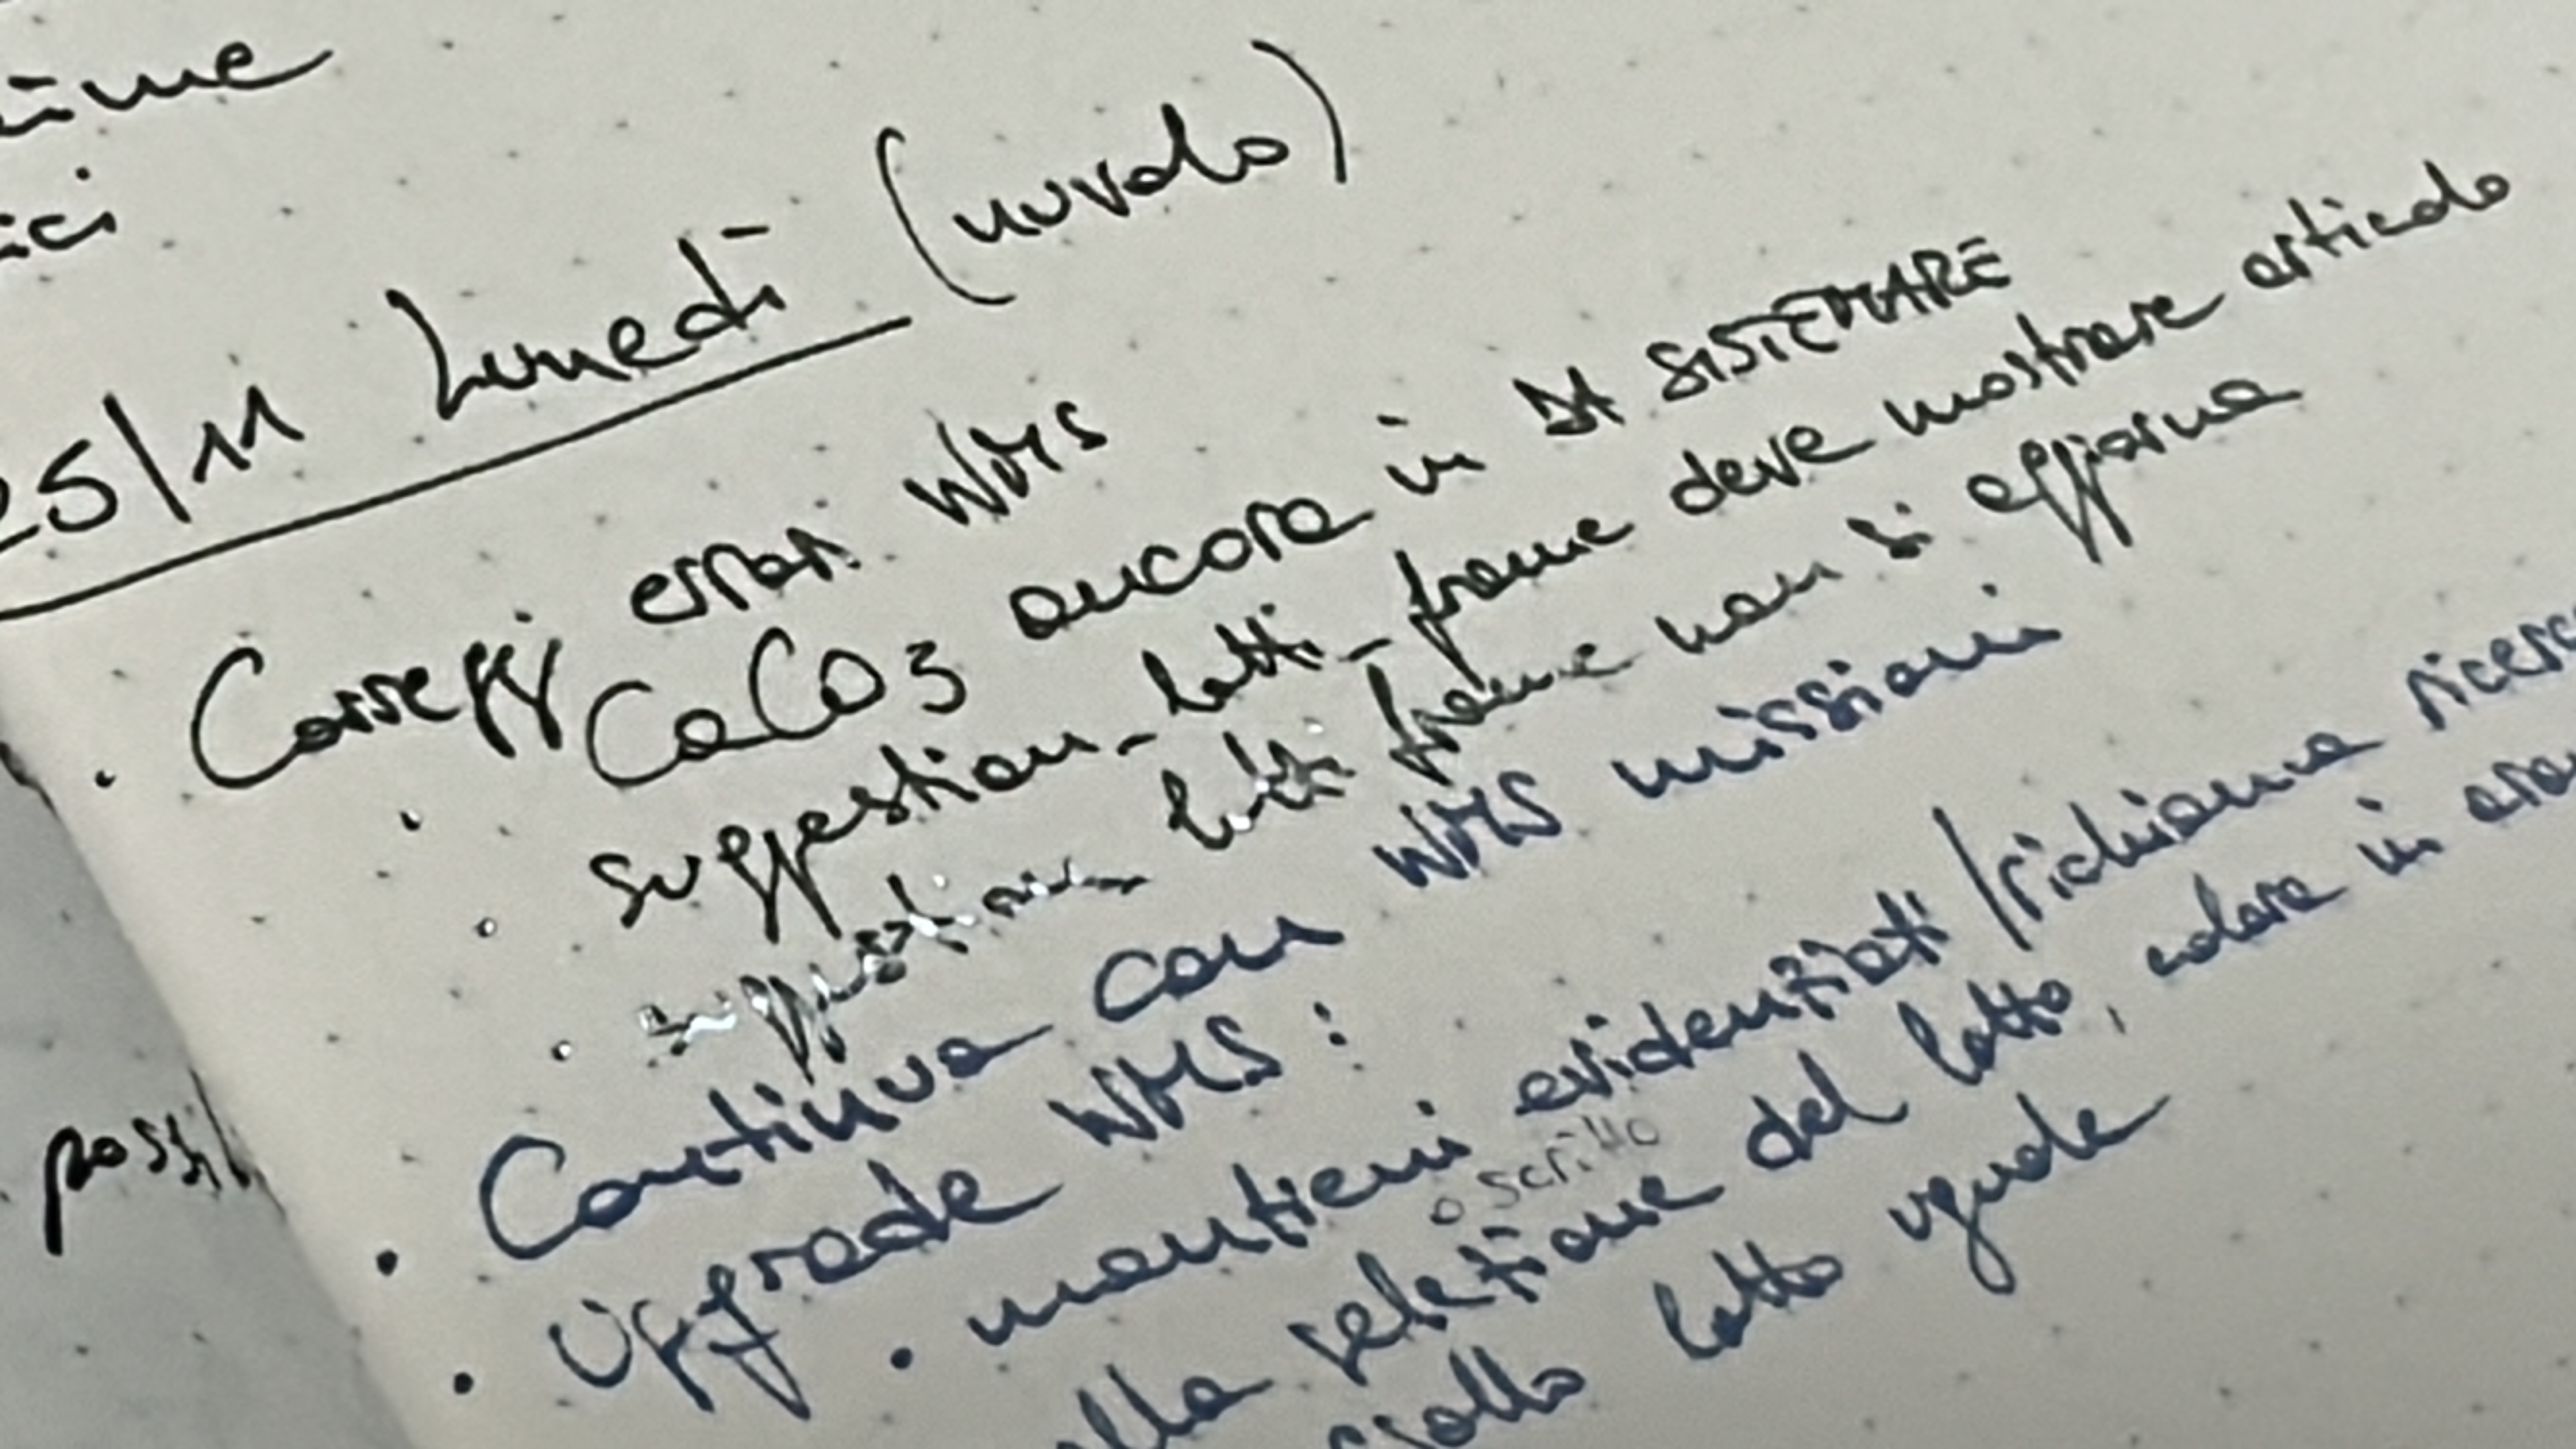 25/11 Lunedì (nuvolo)
. Correggi errori WMS
. CaCO3 ancora in DA SISTEMARE
. suggestion_lotti_frame deve mostrare articolo
. suggestion_lotti frame non si aggiorna
. Continua con WMS missioni
. Upgrade WMS:
. mantieni evidenziati / richiama
o scritto
selezione del lotto, colora in
lotto uguale
possi